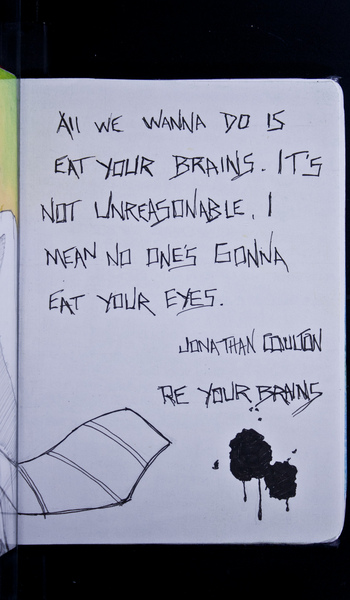 All WE WANNA DO IS
EAT YOUR BRAINS. IT'S
NOT UNREASONABLE, I
MEAN NO ONE'S GONNA
EAT YOUR EYES.
JONATHAN COULTON
RE YOUR BRAINS